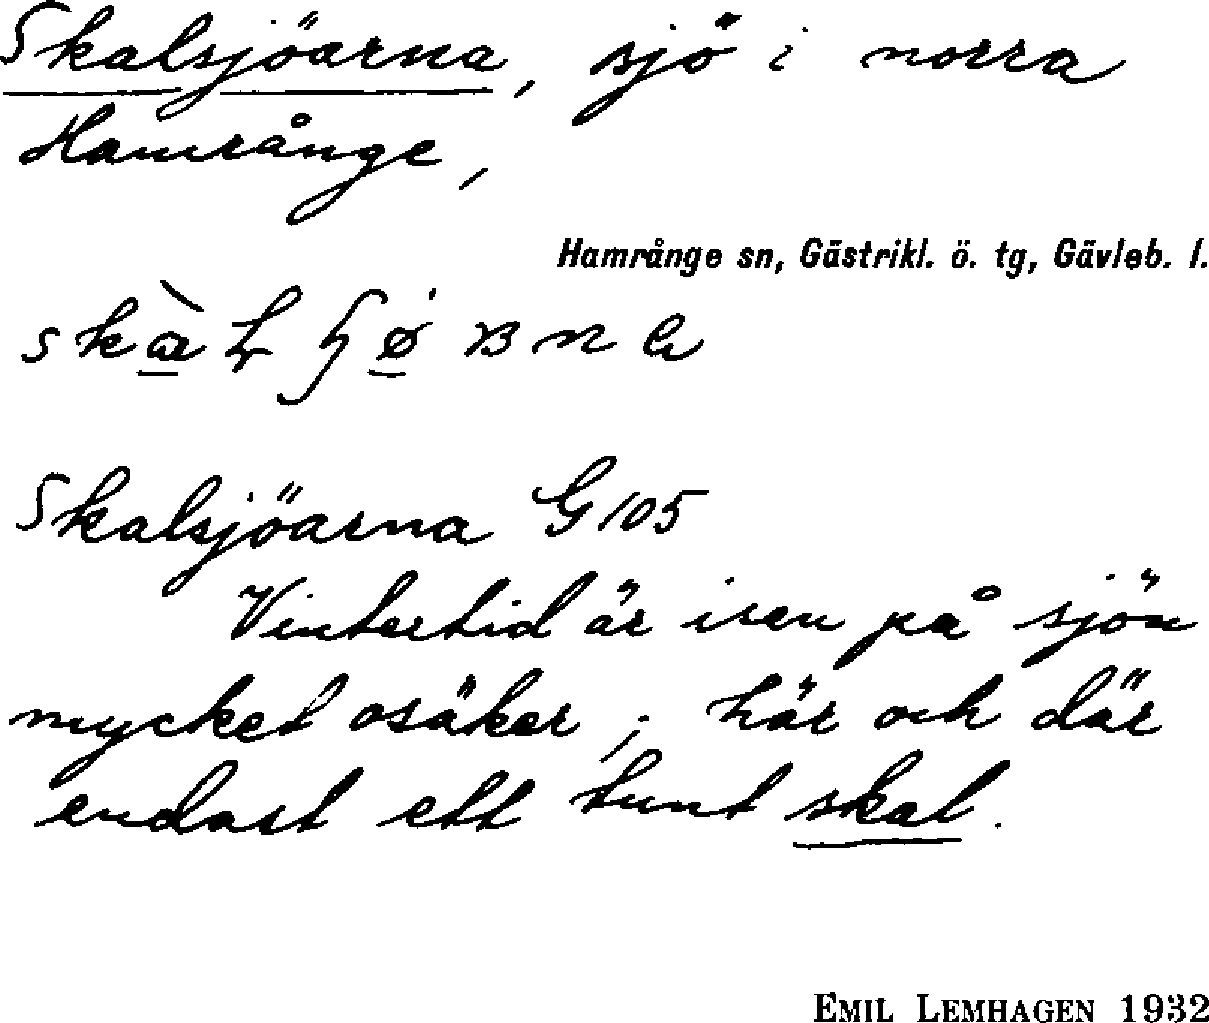 Skalsjöarna, sjö i norra
Hamrånge,
Hamrånge sn, Gästrikl. ö. tg, Gävleb. l.
Skalsjöarna G 105
Vintertid är isen på sjön
mycket osäker; här och där
endast ett tunt skal.
EMIL LEMHAGEN 1932